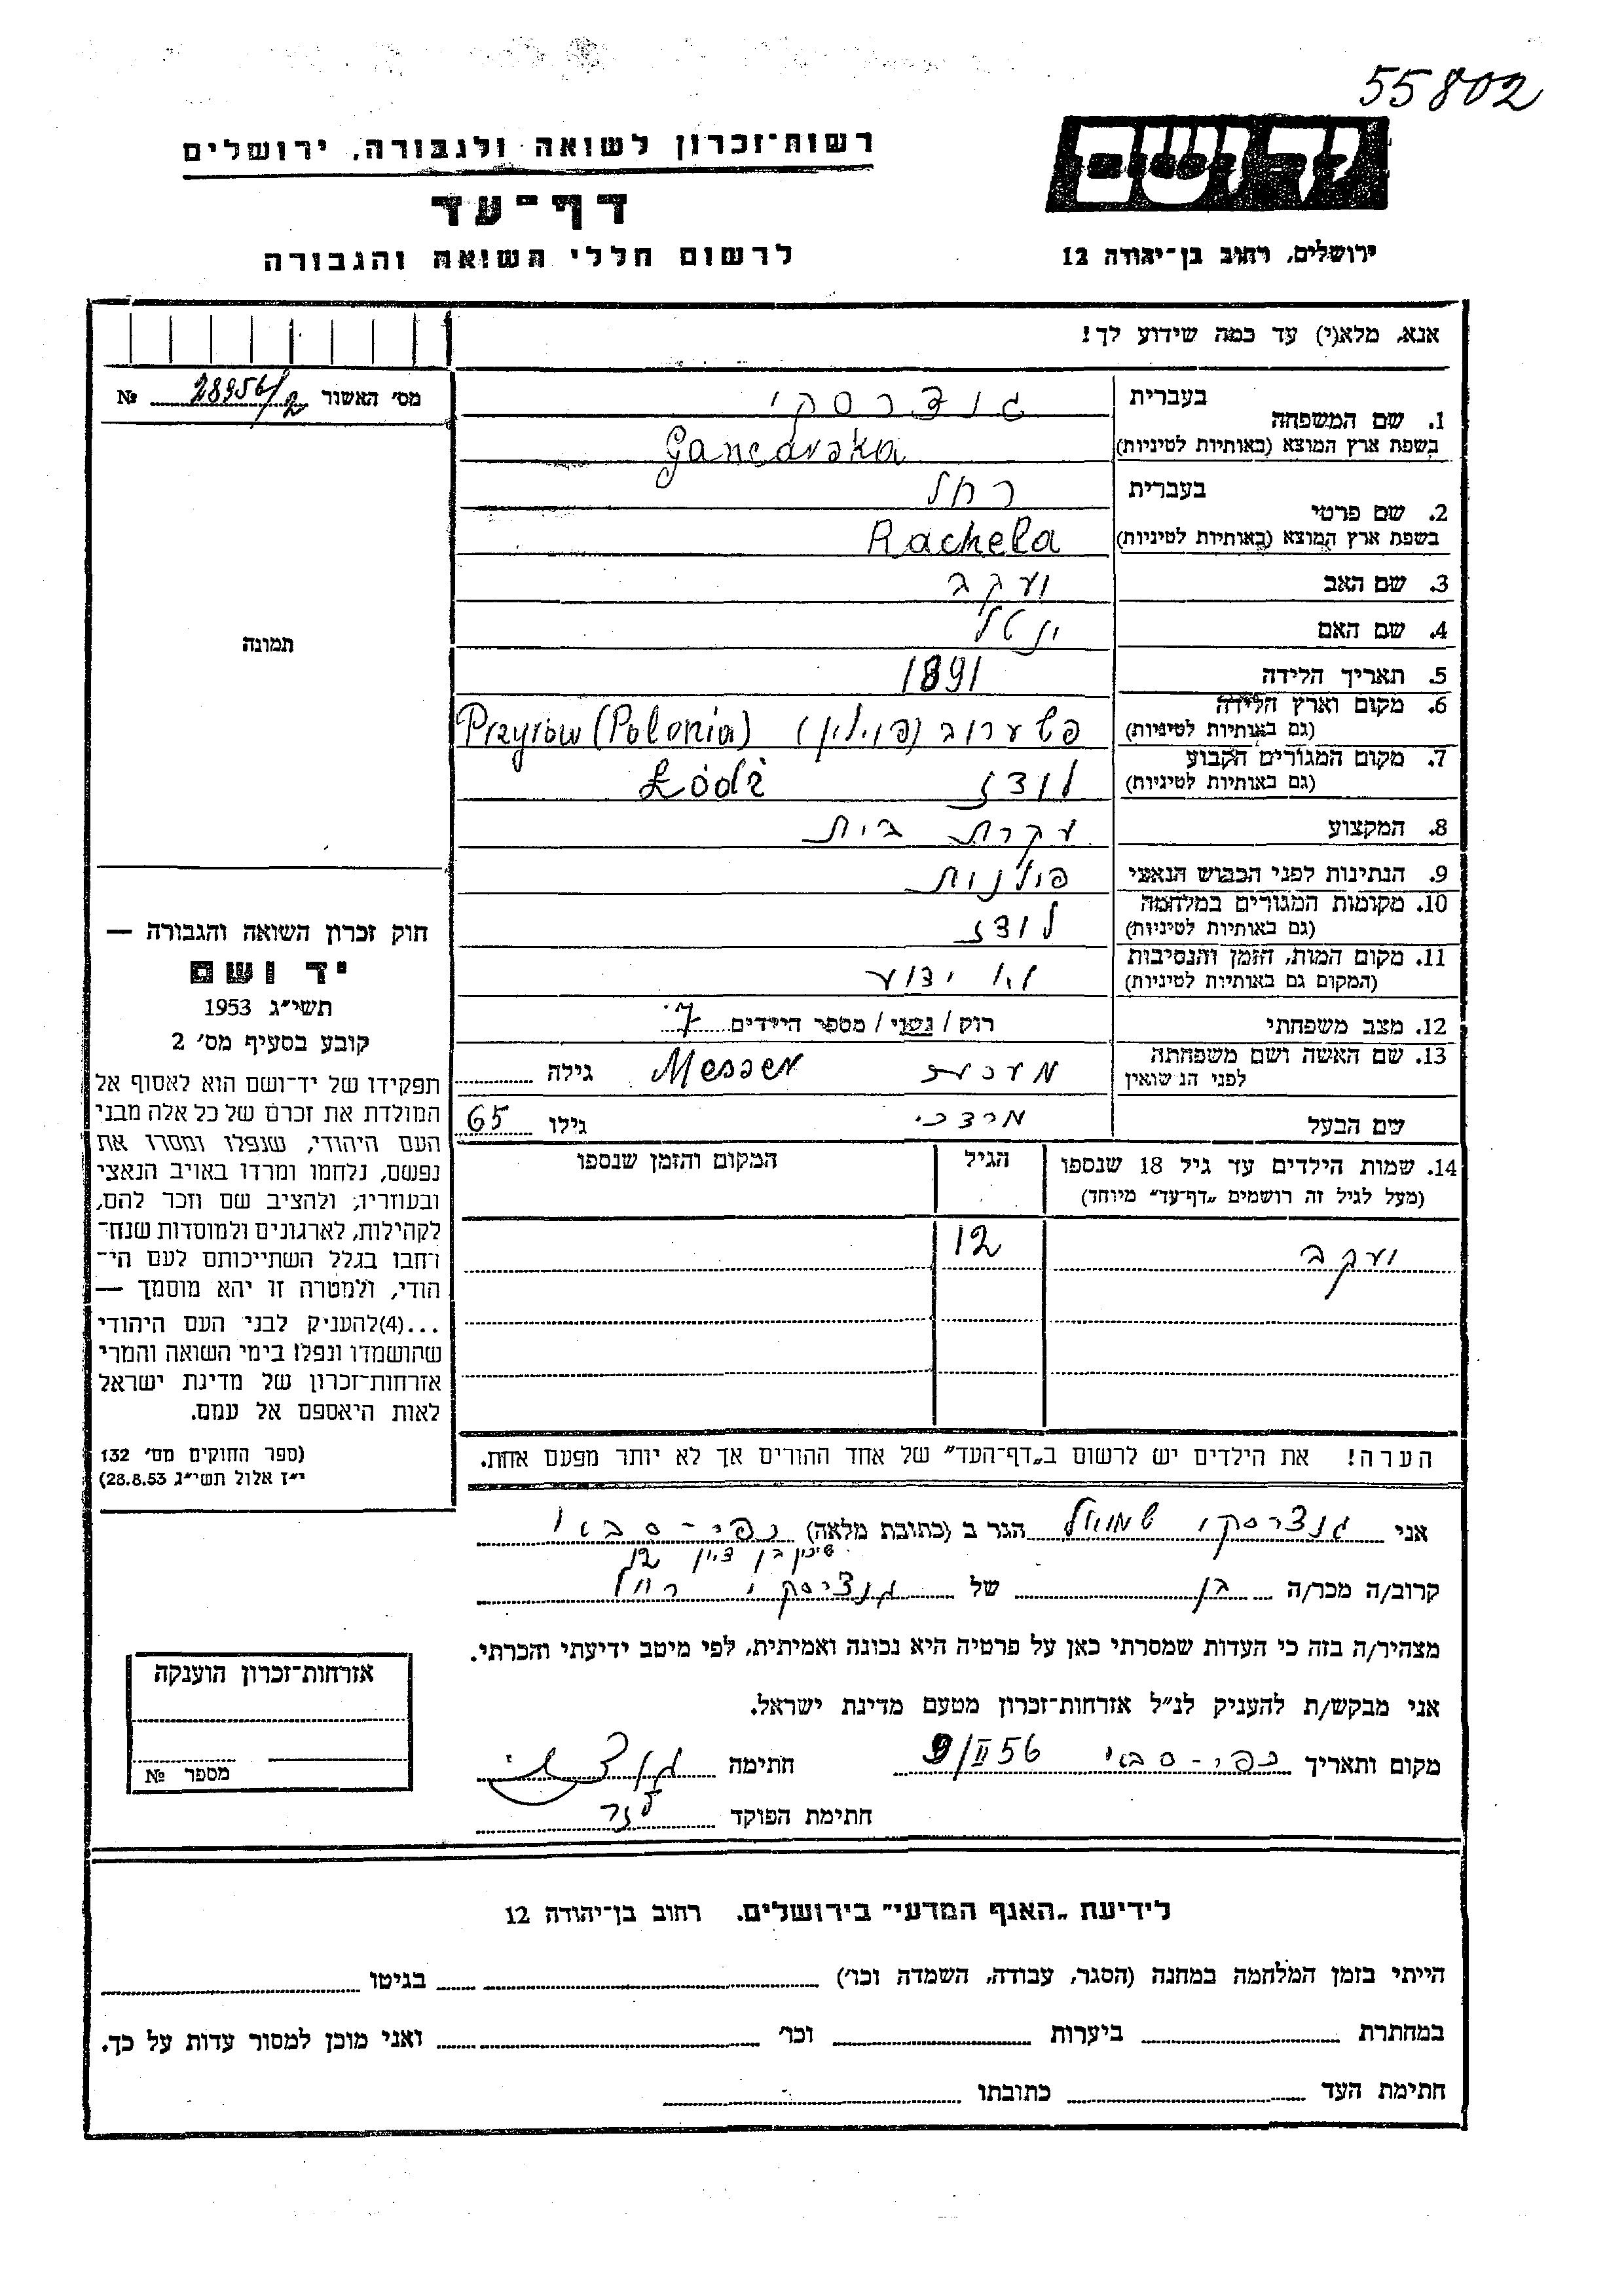 55802
יד ושם
רשות־זכרון לשואה ולגבורה, ירושלים
דף־עד
לרשום חללי השואה והגבורה
ירושלים, רחוב בן־יהודה 12
אנא, מלא(י) עד כמה שידוע לך!
מס׳ האשור 28956/2 №
1. שם המשפחה בעברית גנצרסקי
בשפת ארץ המוצא (באותיות לטיניות) Gancarska
2. שם פרטי בעברית רחל
בשפת ארץ המוצא (באותיות לטיניות) Rachela
3. שם האב יעקב
4. שם האם יטל
5. תאריך הלידה 1891
6. מקום וארץ הלידה
(גם באותיות לטיניות) פשערוב (פוילין) Przyrów (Polonia)
7. מקום המגורים הקבוע
(גם באותיות לטיניות) לודז Łódź
8. המקצוע עקרת בית
9. הנתינות לפני הכבוש הנאצי פולנית
10. מקומות המגורים במלחמה
(גם באותיות לטיניות) לודז
11. מקום המות, הזמן והנסיבות
(המקום גם באותיות לטיניות) לא ידוע
12. מצב משפחתי רוק / נשוי / מספר הילדים 7
13. שם האשה ושם משפחתה
לפני הנשואין Messer גילה
שם הבעל מרדכי גילו 65
14. שמות הילדים עד גיל 18 שנספו הגיל המקום והזמן שנספו
(מעל לגיל זה רושמים „דף־עד״ מיוחד)
יעקב 12
הערה! את הילדים יש לרשום ב„דף־העד״ של אחד ההורים אך לא יותר מפעם אחת.
תמונה
חוק זכרון השואה והגבורה —
יד ושם
תשי״ג 1953
קובע בסעיף מס׳ 2
תפקידו של יד־ושם הוא לאסוף אל
המולדת את זכרם של כל אלה מבני
העם היהודי, שנפלו ומסרו את
נפשם, נלחמו ומרדו באויב הנאצי
ובעוזריו, ולהציב שם וזכר להם,
לקהילות, לארגונים ולמוסדות שנח־
רבו בגלל השתייכותם לעם הי־
הודי, ולמטרה זו יהא מוסמך —
...(4)להעניק לבני העם היהודי
שהושמדו ונפלו בימי השואה והמרי
אזרחות־זכרון של מדינת ישראל
לאות היאספם אל עמם.
(ספר החוקים מס׳ 132
י״ז אלול תשי״ג 28.8.53)
אני גנצרסקי שמואל הגר ב (כתובת מלאה) כפר־סבא
שיכון בן ציון 12
קרוב/ה מכר/ה בן של גנצרסקי רחל
מצהיר/ה בזה כי העדות שמסרתי כאן על פרטיה היא נכונה ואמיתית, לפי מיטב ידיעתי והכרתי.
אני מבקש/ת להעניק לנ״ל אזרחות־זכרון מטעם מדינת ישראל.
מקום ותאריך כפר־סבא 9/II 56 חתימה
חתימת הפוקד
אזרחות־זכרון הוענקה
מספר №
לידיעת „האגף המדעי״ בירושלים, רחוב בן־יהודה 12
הייתי בזמן המלחמה במחנה (הסגר, עבודה, השמדה וכו׳) בגיטו
במחתרת ביערות וכו׳ ואני מוכן למסור עדות על כך.
חתימת העד כתובתו